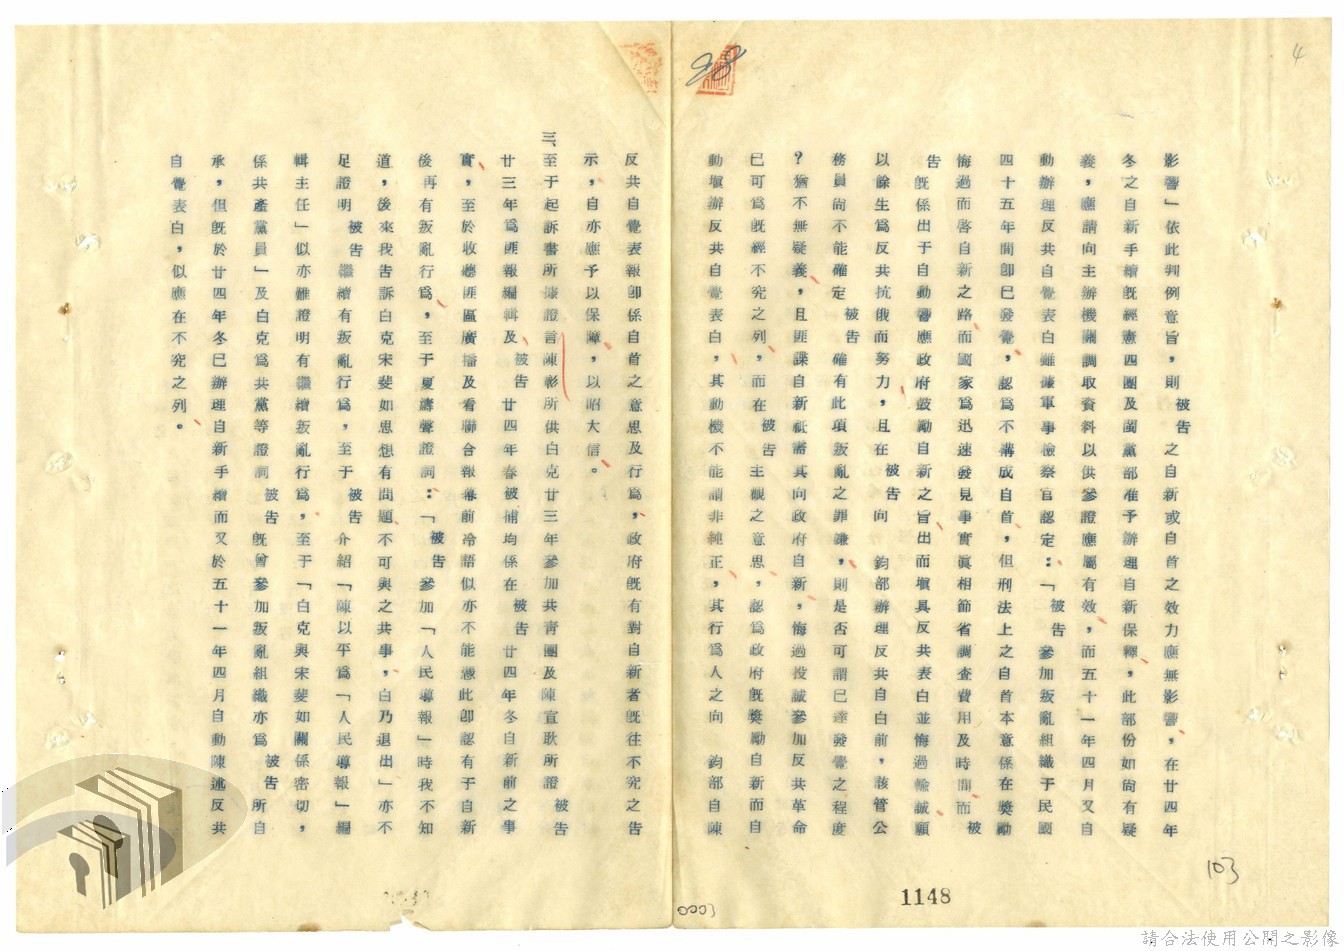 影響」依此判例意旨，則被告之自新或自首之效力應無影響，在廿四年
冬之自新手續既經憲四團及閩黨部准予辦理自新保釋，此部份如尚有疑
義，應請向主辦機關調取資料以供參證應屬有效，而五十一年四月又自
動辦理反共自覺表白雖據軍事檢察官認定：「被告參加叛亂組織于民國
四十五年間卽已發覺，認爲不構成自首，但刑法上之自首本意係在獎勵
悔過而啓自新之路而國家爲迅速發見事實眞相節省調查費用及時間而被
告既係出于自動響應政府鼓勵自新之旨出而塡具反共表白並悔過輸誠願
以餘生爲反共抗俄而努力，且在被告向 鈞部辦理反共自白前，該管公
務員尚不能確定被告確有此項叛亂之罪嫌，則是否可謂已達發覺之程度
？猶不無疑義，且匪諜自新祇需其向政府自新，悔過投誠參加反共革命
已可爲既經不究之列，而在被告主觀之意思，認爲政府既獎勵自新而自
動塡辦反共自覺表白，其動機不能謂非純正，其行爲人之向 鈞部自陳
反共自覺表報卽係自首之意思及行爲，政府既有對自新者既往不究之告
示，自亦應予以保障，以昭大信。
三、至于起訴書所據證言陳彰所供白克廿三年參加共靑團及陳宣耿所證被告
廿三年爲匪報編輯及被告廿四年春被捕均係在被告廿四年冬自新前之事
實，至於收聽匪區廣播及看聯合報專前冷語似亦不能憑此卽認有于自新
後再有叛亂行爲，至于夏濤聲證詞：「被告參加「人民導報」時我不知
道，後來我告訴白克宋斐如思想有問題不可與之共事，白乃退出」亦不
足證明被告繼續有叛亂行爲，至于被告介紹「陳以平爲「人民導報」編
輯主任」似亦難證明有繼續叛亂行爲，至于「白克與宋斐如關係密切，
係共產黨員」及白克爲共黨等證詞被告既曾參加叛亂組織亦爲被告所自
承，但既於廿四年冬已辦理自新手續而又於五十一年四月自動陳述反共
自覺表白，似應在不究之列。
98
4
103
1148
請合法使用公開之影像